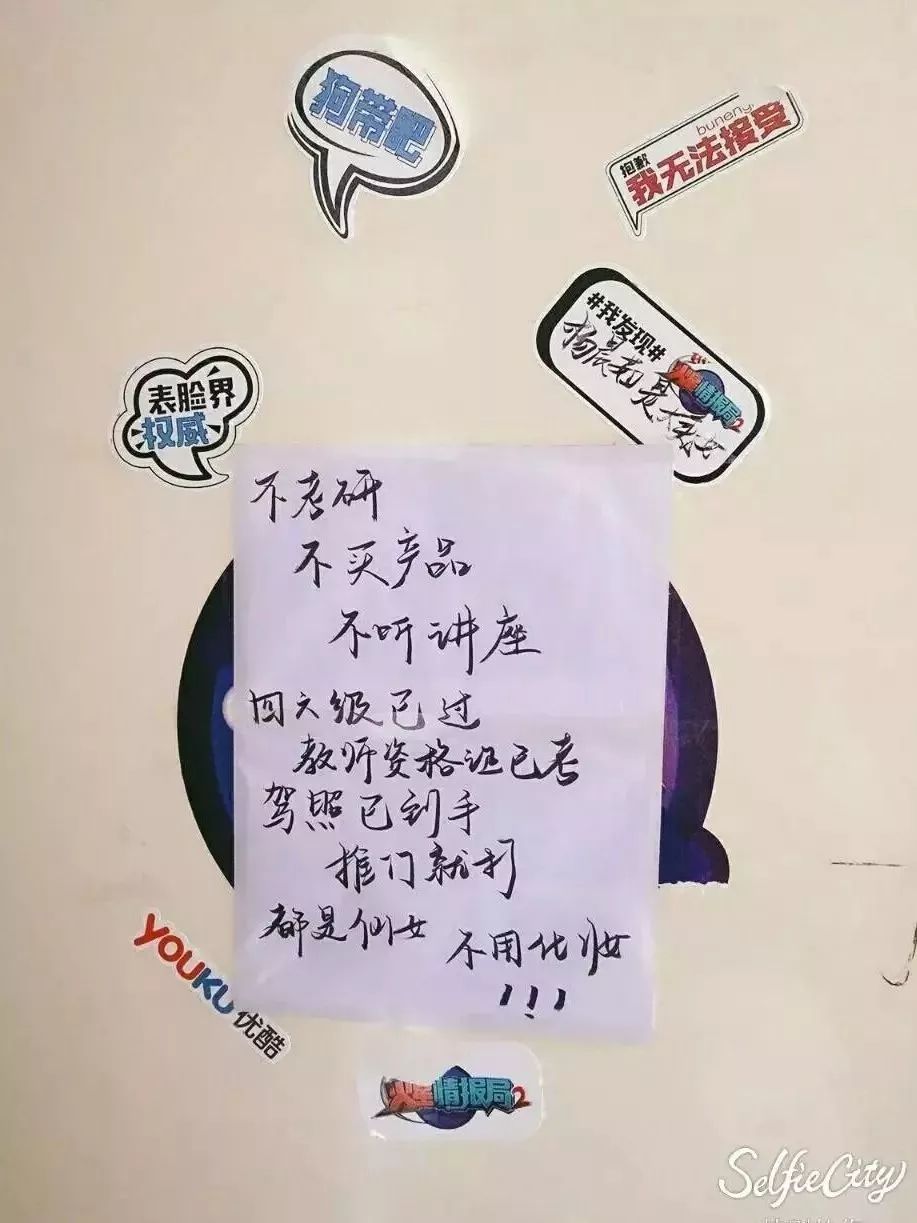 狗带吧
buneng
抱歉
我无法接受
#我发现#
火星情报局2
表脸界
权威
不考研
不买产品
不听讲座
四六级已过
教师资格证已考
驾照已到手
推门就打
都是仙女
不用化妆
!!!
YOUKU优酷
火星情报局2
SelfieCity